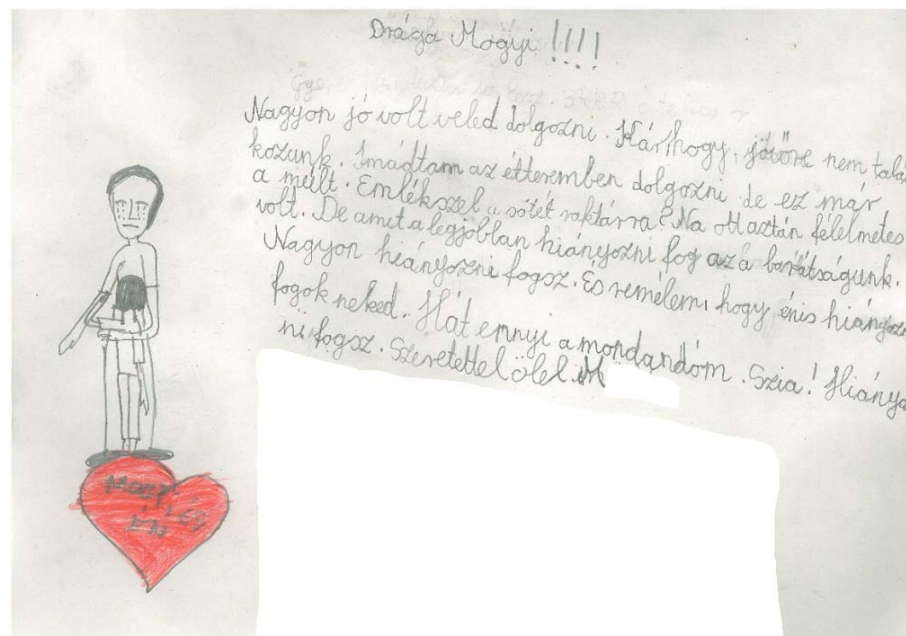 Drága Mogyi !!!!
Nagyon jó volt veled dolgozni. Kár, hogy, jövőre nem talál
kozunk. Imádtam az étteremben dolgozni de ez már
a múlt. Emlékszel a sötét raktárra? Na ott aztán félelmetes
volt. De amit a legjobban hiányozni fog az a barátságunk.
Nagyon hiányozni fogsz. És remélem, hogy, énis hiányozni
fogok neked. Hát ennyi a mondandóm. Szia! Hiányoz
ni fogsz. Szeretettel ölel:
és
én